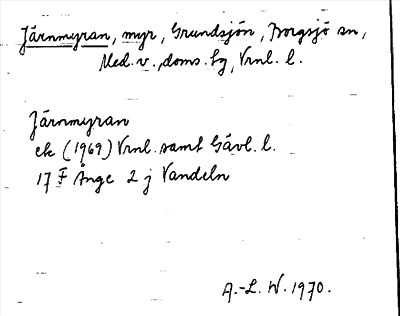 Järnmyran, myr, Grundsjön, Borgsjö sn,
Med. v. doms. Lg, Vrnl. l.
Järnmyran
ek (1969) Vrnl. samt Gävl. l.
17 F Ånge 2 j Vandeln
A.-L. W. 1970.